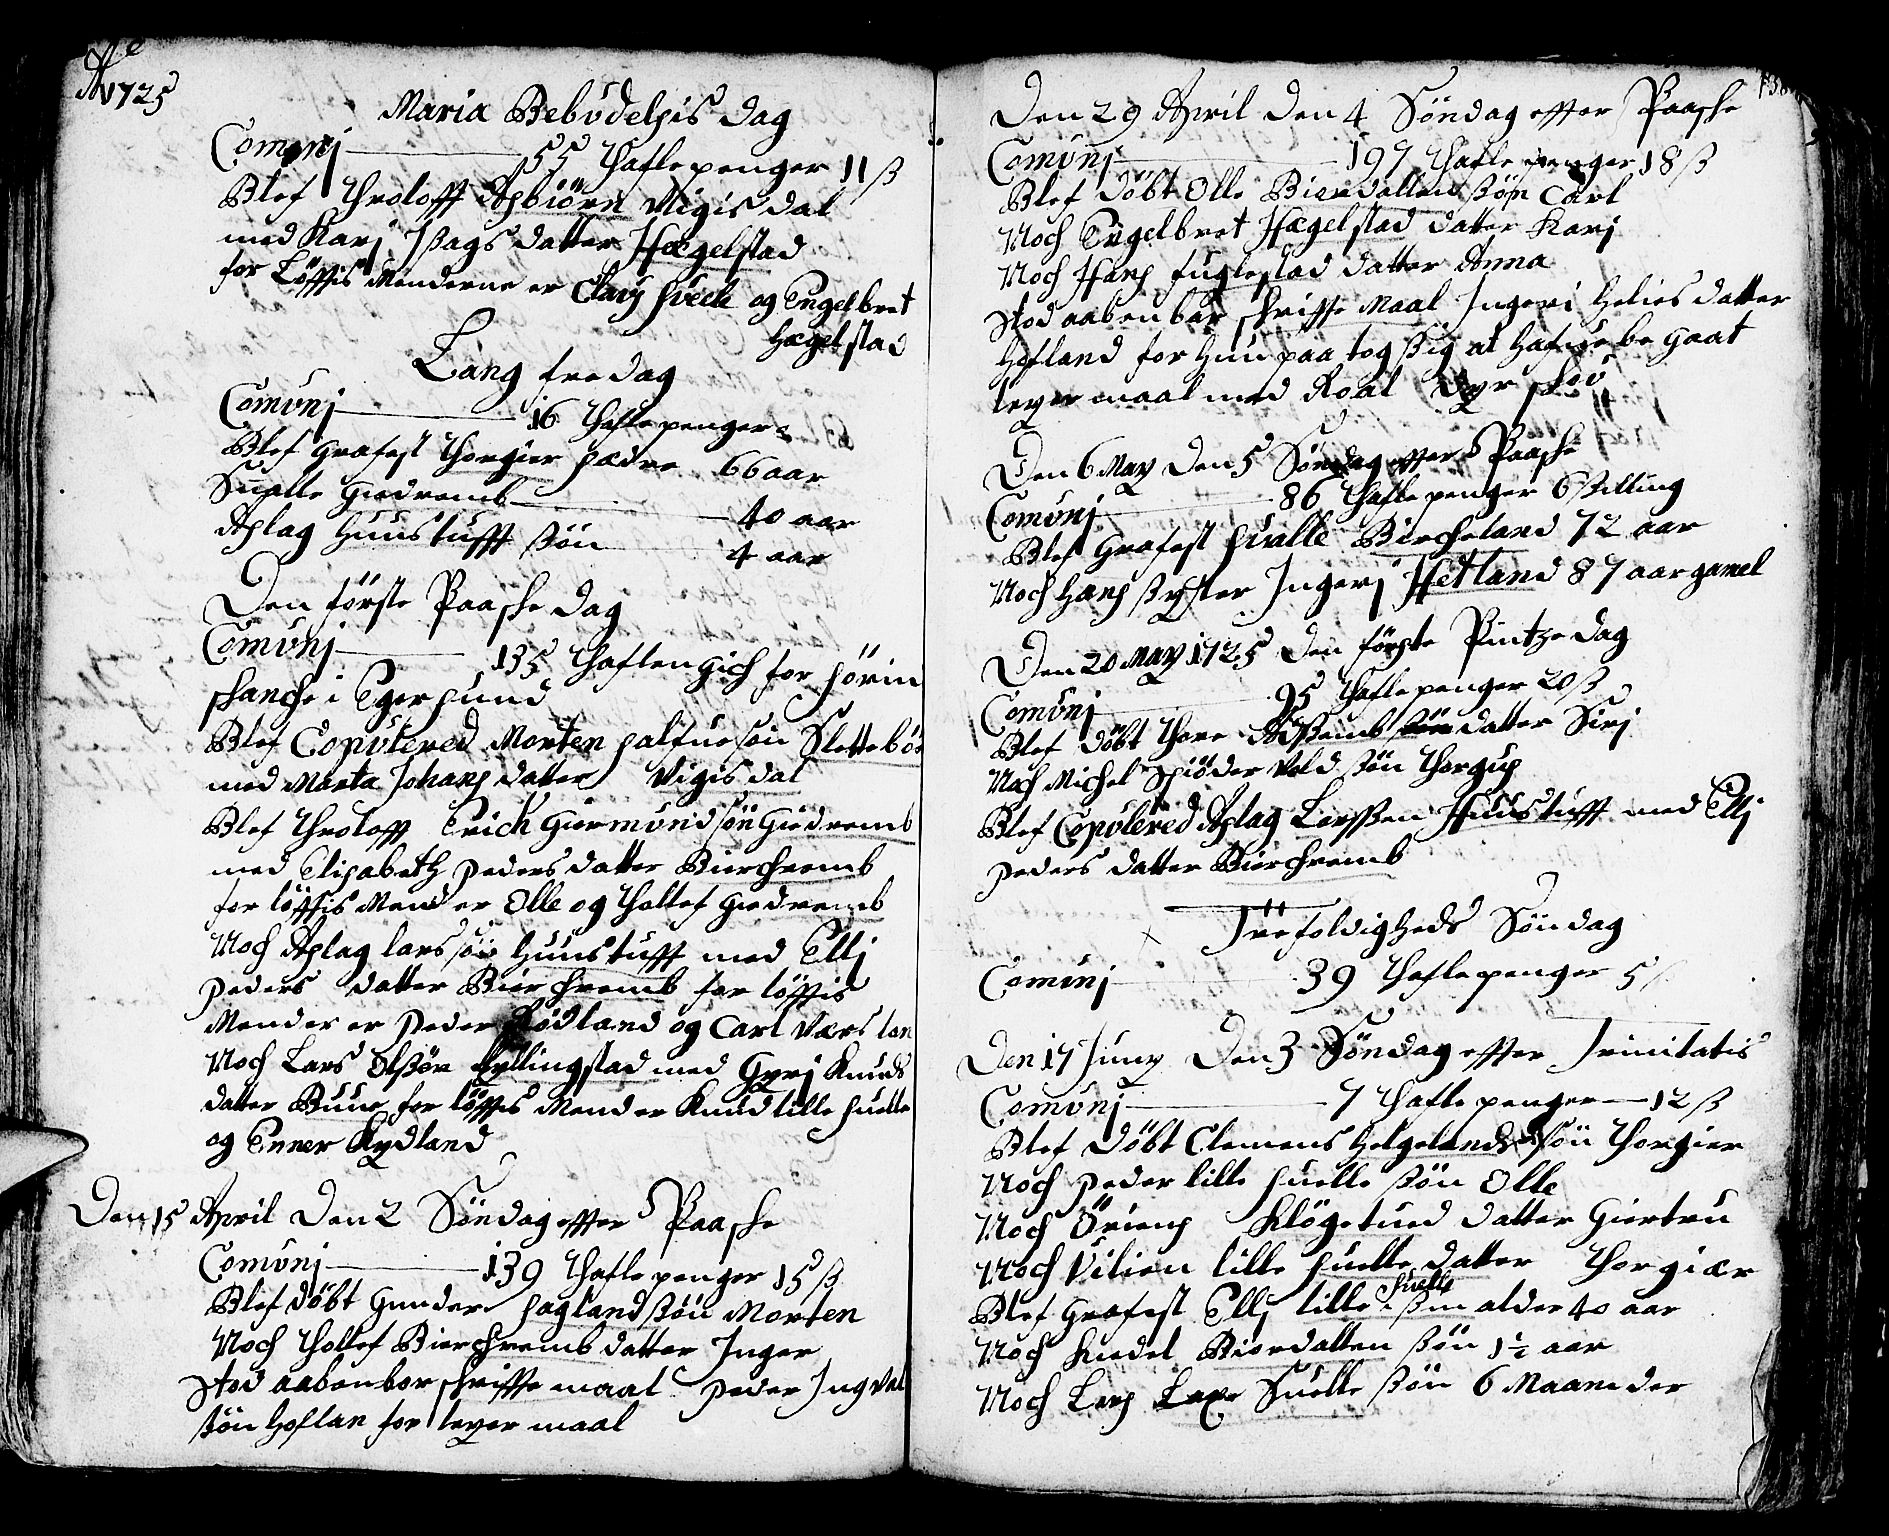 Ao 1725
Maria Bebudelsis dag
Comunj 55 Thafle penger 11 ß
Blef throlofft Asbiörn Vigisdal
med Karj Isags datter Hægelstad
for Löfftis Menderne er Claus hvell og Engelbret
Hægelstad
Lang fredag
Comunj 16 Thaflepenger
Blef grafest Thorgier 66 aar
Sualle Giedremb 40 aar
Aslag Huustufft Søn 4 aar
Den förste Paaske dag
Comunj 135 Thaflen gich for
schanche i Egersund
Blef Copulered Morten Slettebö
med Marta Johans datter Vigisdal
Blef throlofft Erich Giermundsön Giedremb
med Elisabeth Peders datter Bierchremb
for löfftis Mend er Olle og Tollef Giedremb
Noch Aslag Larssön Huustufft med Ellj
Peders datter Bierchremb for löfftis
Mender er Peder Rödland og Carl Værslan
Noch Lars Olsön Eyllingstad med Gyrj Knuds
datter Buue for löfftis Mender Knud lille huelle
og Enner Rydland
Den 15 April den 2 Söndag effter Paaske
Comunj 139 Thafle penger 15 ß
Blef döbt Gunder Hagland sön Morten
Noch Tollef Bierchremb datter Inger
Stod aabenbar schriffte maal Peder Ingval
sön Hoflan for leyer maal
Den 29 April den 4 Söndag effter Paaske
Comunj 197 Thafle penger 18 ß
Blef döbt Olle Bieredallen sön Carl
Noch Engelbret Hægelstad datter Karj
Noch Hans fuglestad datter Anna
Stod aabenbar schriffte maal Ingeri Helies datter
Hofland for hun paa tog sig at hafue be gaaet
leyer maal med Roal Dyrschov
Den 6 May den 5 Söndag effter Paaske
Comunj 86 Thafle penger 6 Skilling
Blef Grafest Sualle Bircheland 72 aar
Noch Hans syster Ingerj Hetland 87 aar gamel
Den 20 May 1725 den förste Pintze dag
Comunj 95 Thafle penger 20 ß
Blef döbt Thore datter Sirj
Noch Michel Spiöder Vold sön Thorgus
Blef Copulered Aslag Larssen Huustufft med Ellj
Peders datter Bierchremb
Trefoldigheds Söndag
Comunj 39 Thaflepenger 5 ß
Den 17 Juny den 3 Söndag effter Trinitatis
Comunj 7 Thafle penger 12 ß
Blef döbt Clemens Helgeland sön Thorgier
Noch Peder lille huelle sön Olle
Noch Öriens Klögetued datter Giertru
Noch Vilien lille huelle datter Thorgiær
Blef Grafest Ellj lille huelle sin alder 40 aar
Noch Kiedel Bieredallen sön 1½ aar
Noch Lars Laxe Suelle sön 6 Maaneder